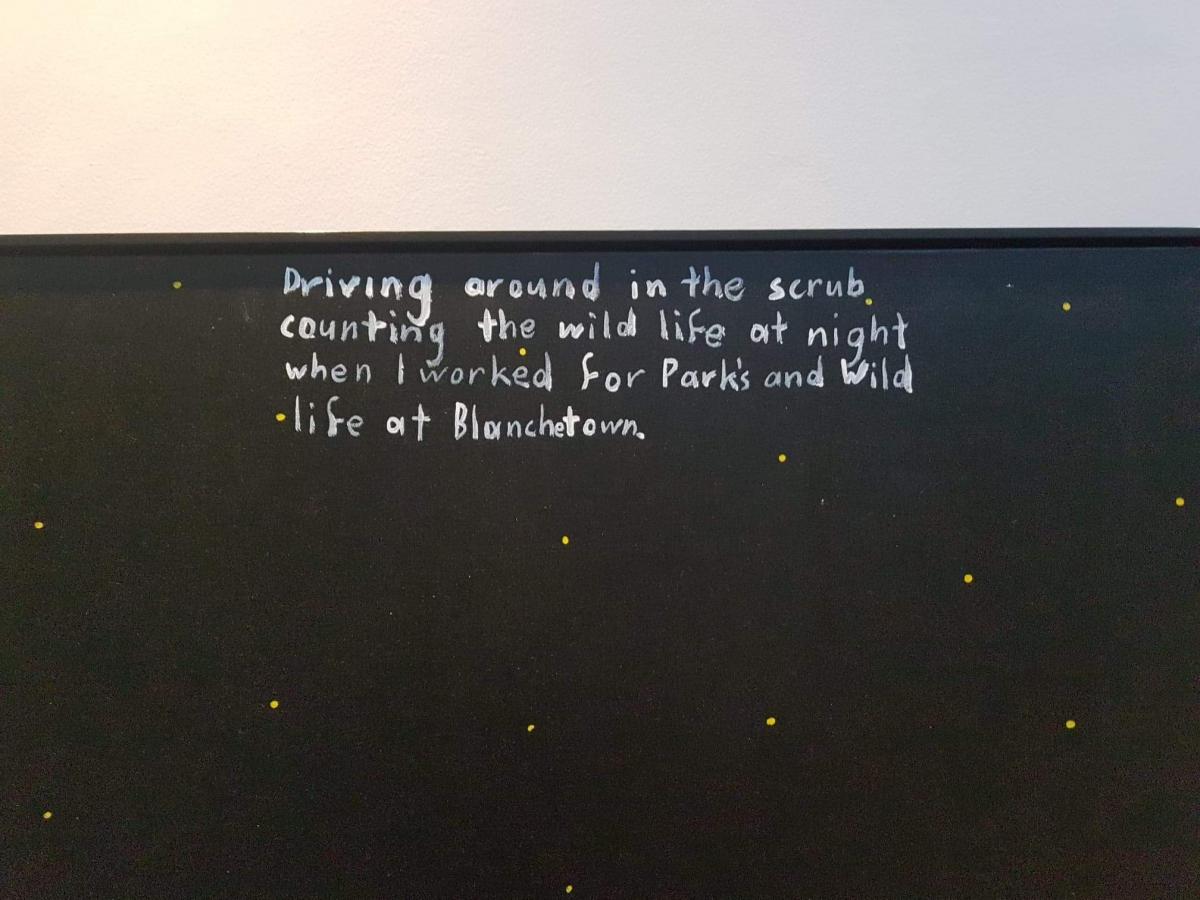 Driving around in the scrub
counting the wild life at night
when I worked for Park's and Wild
life at Blanchetown.